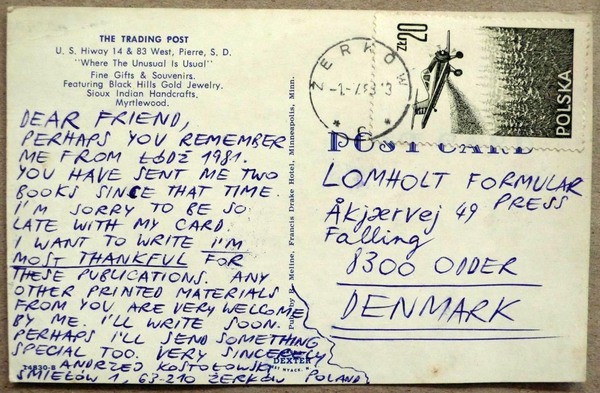 THE TRADING POST
U. S. Hiway 14 & 83 West, Pierre, S. D.
"Where The Unusual Is Usual"
Fine Gifts & Souvenirs.
Featuring Black Hills Gold Jewelry.
Sioux Indian Handcrafts.
Myrtlewood.
DEAR FRIEND,
PERHAPS YOU REMEMBER
ME FROM ŁÓDŹ 1981.
YOU HAVE SENT ME TWO
BOOKS SINCE THAT TIME.
I'M SORRY TO BE SO
LATE WITH MY CARD.
I WANT TO WRITE I'M
MOST THANKFUL FOR
THESE PUBLICATIONS. ANY
OTHER PRINTED MATERIALS
FROM YOU ARE VERY WELCOME
BY ME. I'LL WRITE SOON.
PERHAPS I'LL SEND SOMETHING
SPECIAL TOO. VERY SINCERELY
ANDRZEJ KOSTOŁOWSKI
ŚMIEŁÓW 1, 63-210 ŻERKÓW POLAND
24830-B
Pub. by R. Meline, Francis Drake Hotel, Minneapolis, Minn.
DEXTER
ŻERKÓW
POLSKA
POST CARD
LOMHOLT FORMULAR
PRESS
Åkjærvej 49
Falling
8300 ODDER
DENMARK